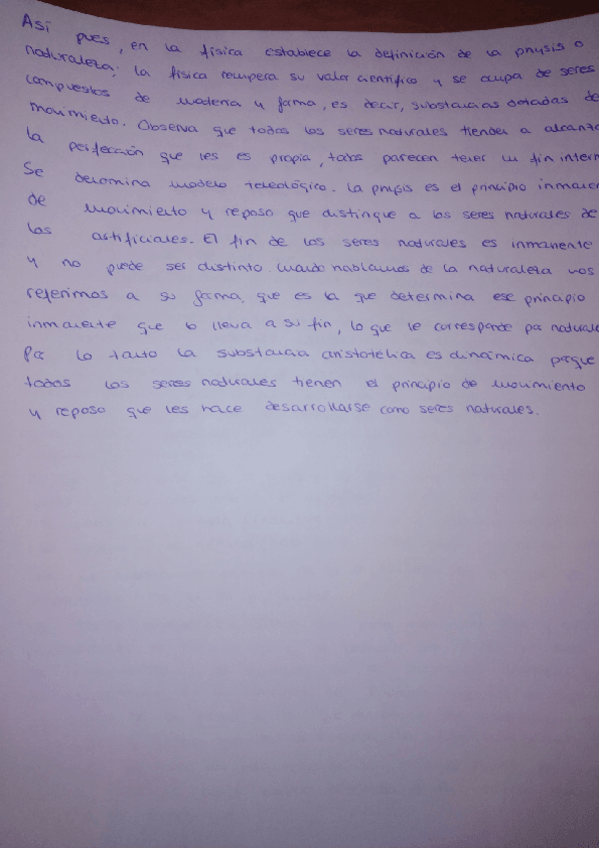 Así pues, en la física establece la definición de la physis o
naturaleza; la física recupera su valor científico y se ocupa de seres
compuestos de materia y forma, es decir, substancias dotadas de
movimiento. Observa que todos los seres naturales tienden a alcanza
la perfección que les es propia, todos parecen tener un fin intern
Se denomina modelo teleológico. La physis es el principio inmanen
de movimiento y reposo que distingue a los seres naturales de
los artificiales. El fin de los seres naturales es inmanente
y no puede ser distinto. Cuando hablamos de la naturaleza nos
referimos a su forma, que es la que determina ese principio
inmanente que lo lleva a su fin, lo que le corresponde por natural
Por lo tanto la substancia aristotélica es dinámica porque
todos los seres naturales tienen el principio de movimiento
y reposo que les hace desarrollarse como seres naturales.